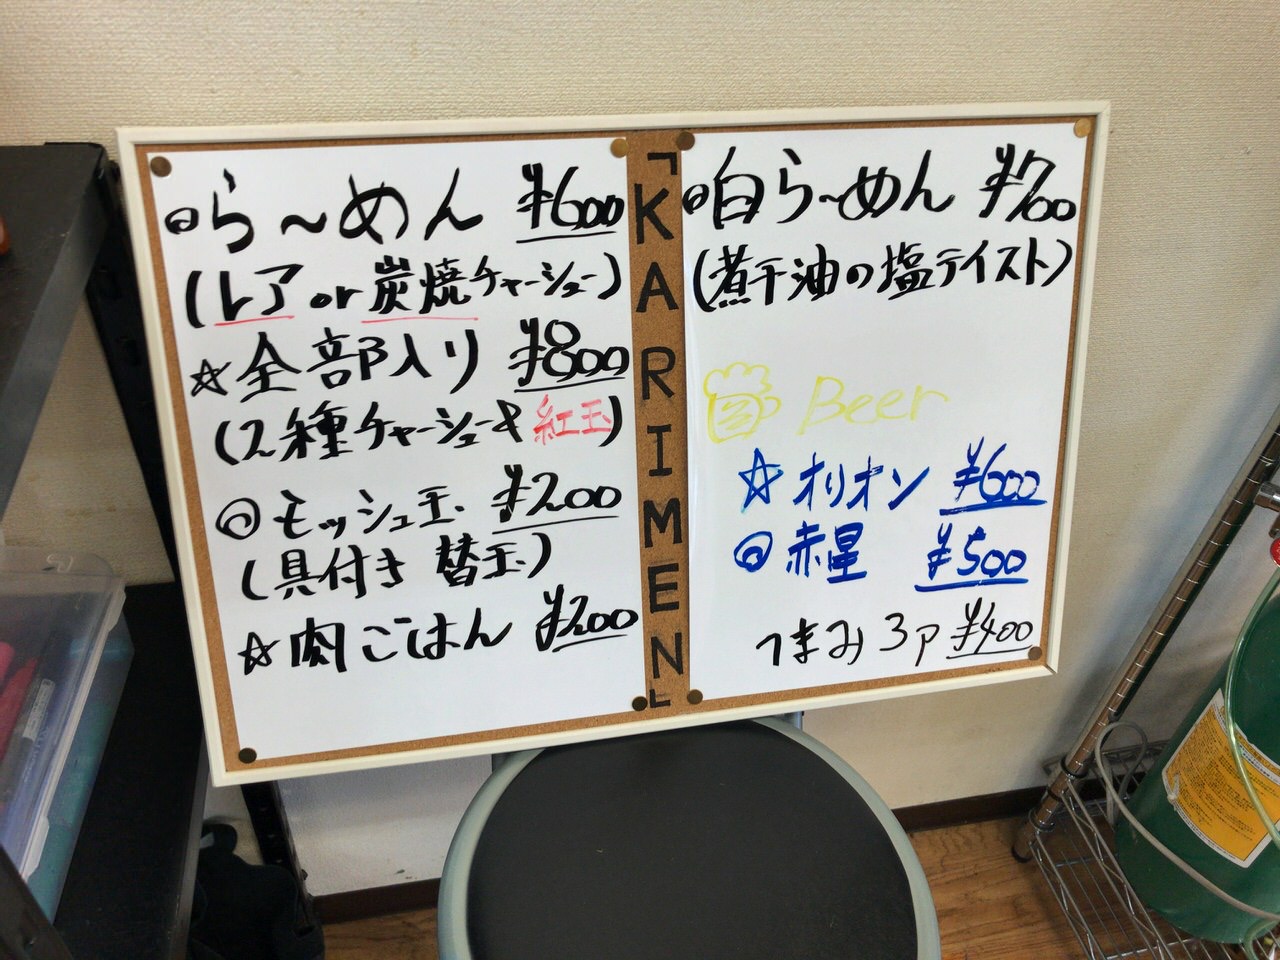 ◎ら〜めん ¥600
(レア or 炭焼チャーシュー)
☆全部入り ¥800
(2種チャーシュー&紅玉)
◎モッシュ玉 ¥200
(具付き 替玉)
☆肉ごはん ¥200
「KARIMEN」
◎白ら〜めん ¥700
(煮干油の塩テイスト)
Beer
☆オリオン ¥600
◎赤星 ¥500
つまみ3P ¥400